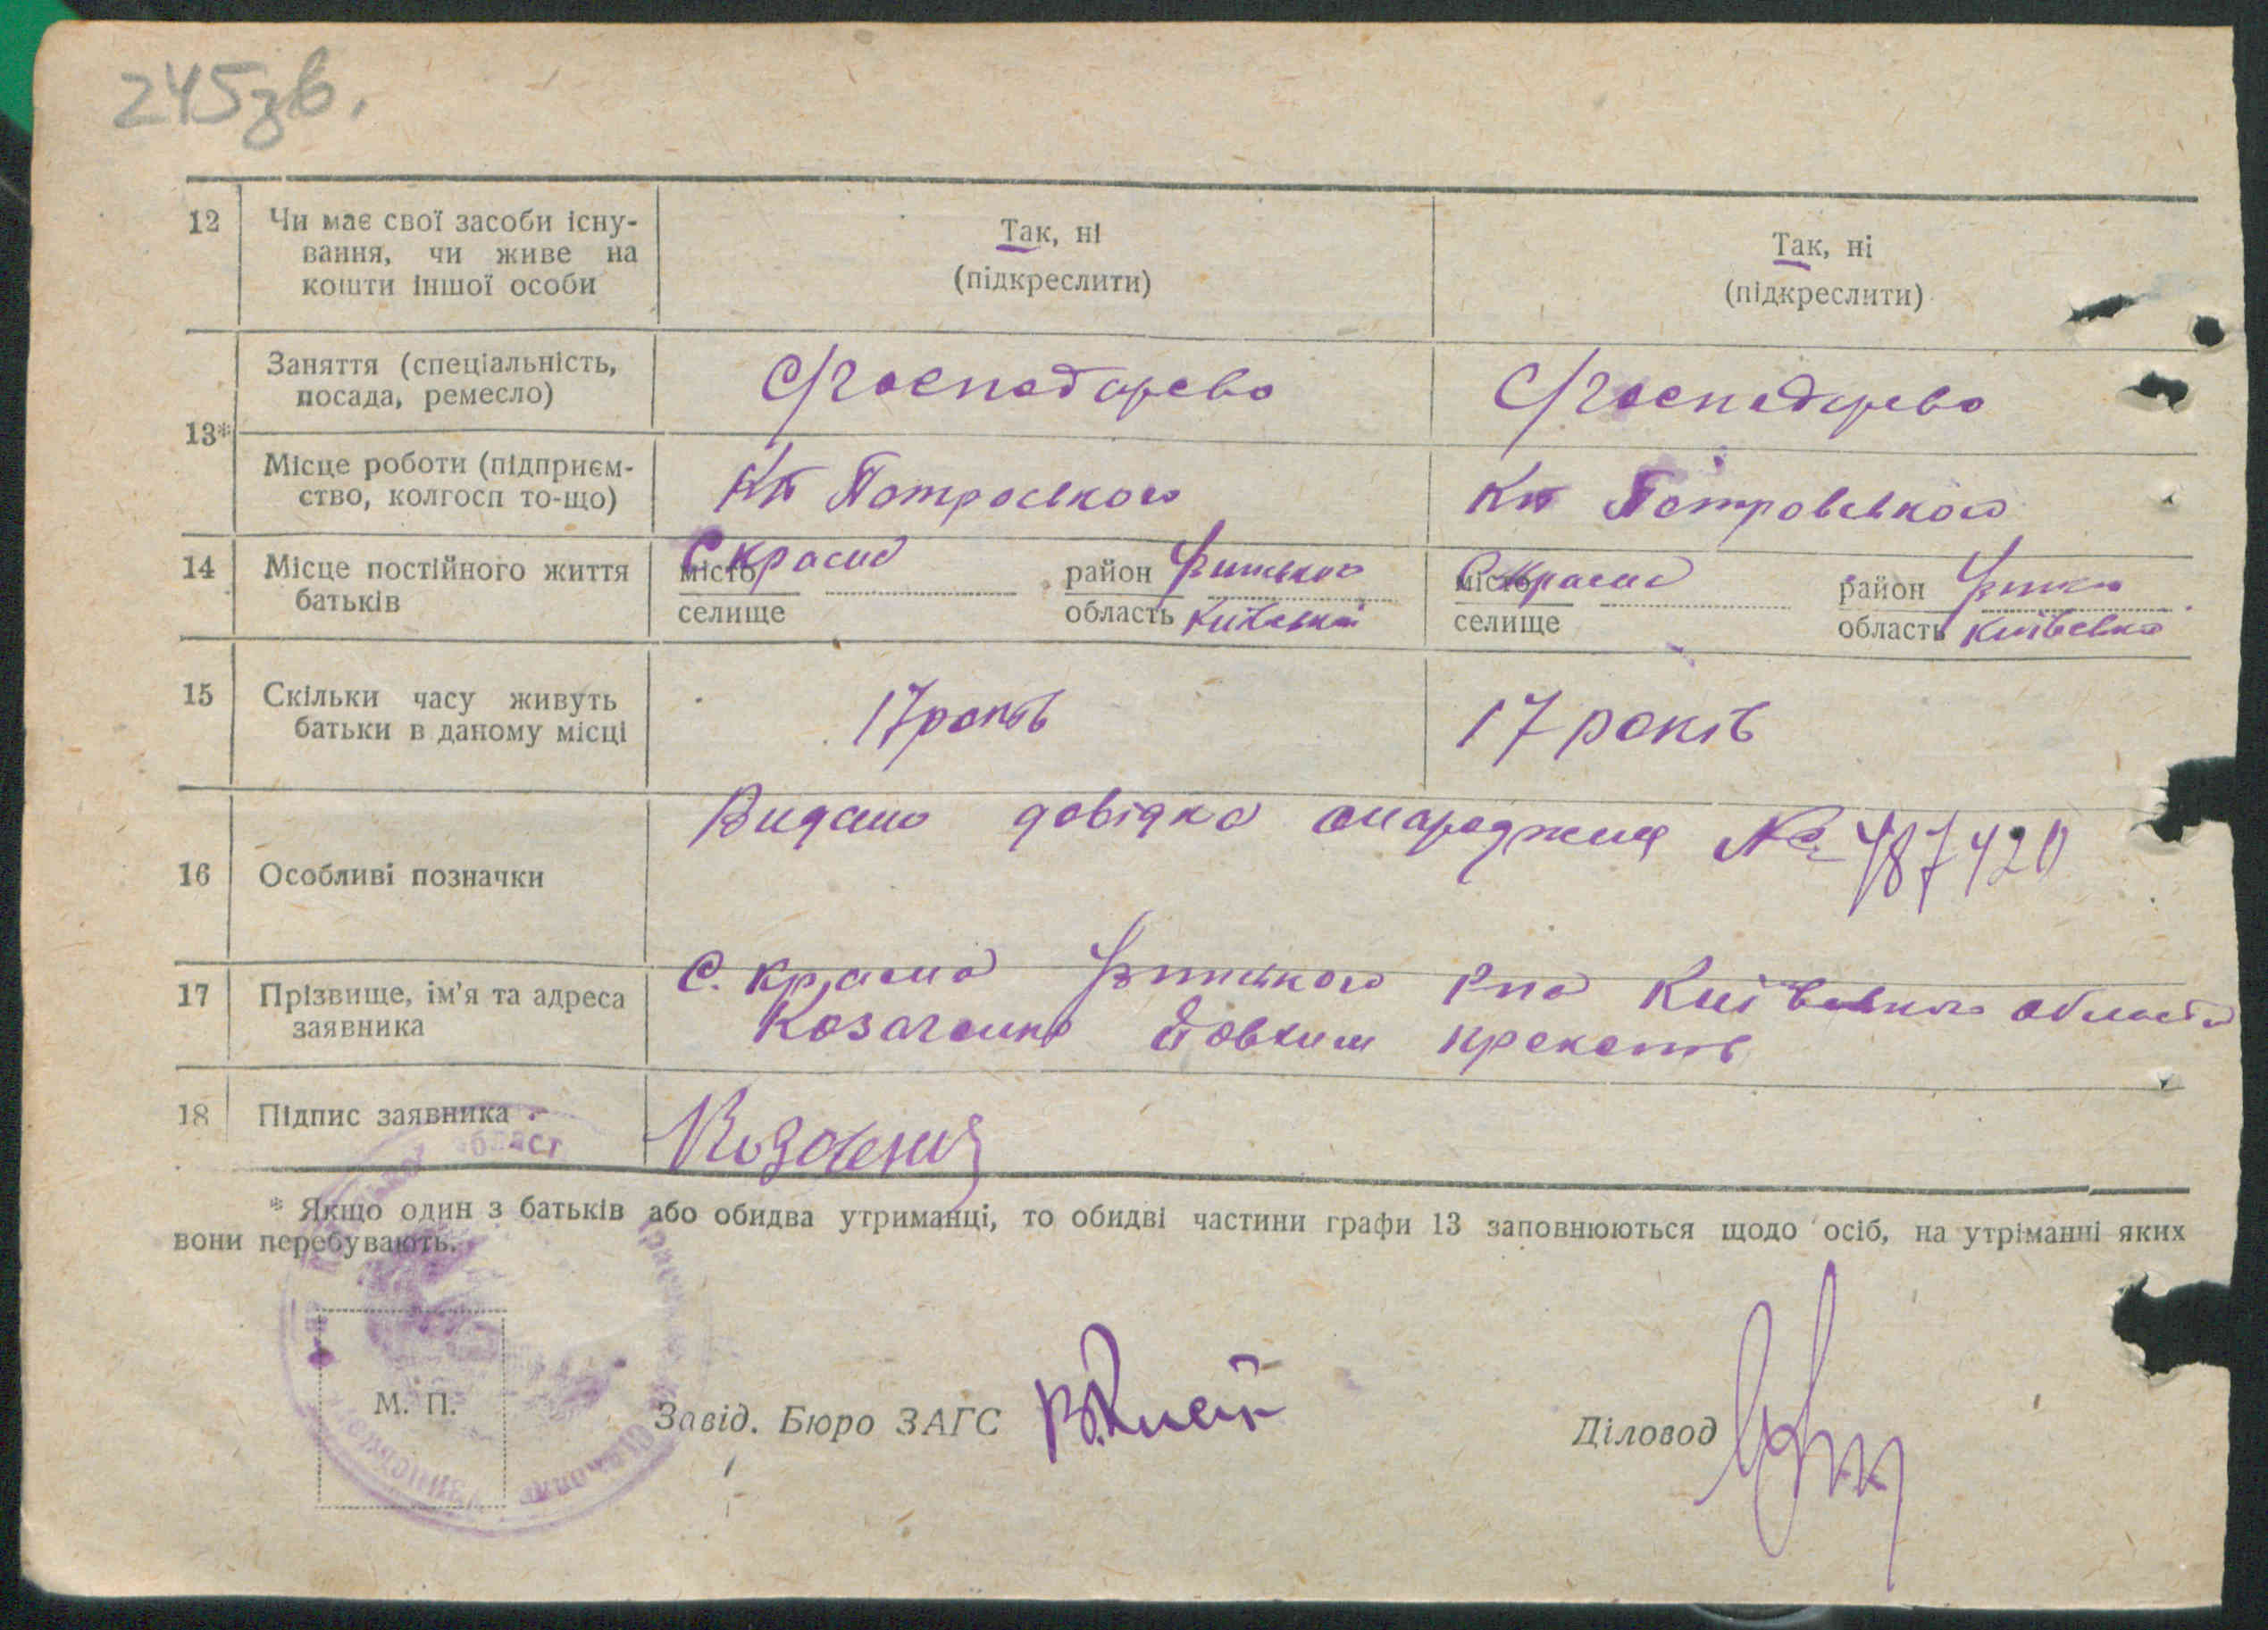 245зв.
12 Чи має свої засоби існу-
вання, чи живе на
кошти іншої особи
Так, ні
(підкреслити)
Так, ні
(підкреслити)
13*
Заняття (спеціальність,
посада, ремесло)
С/господарево
С/господарево
Місце роботи (підприєм-
ство, колгосп то-що)
Петроського
Петровського
14 Місце постійного життя
батьків
місто
селище
С Красна
район
область Київська
місто
селище
С Красна
район
область Київська
15 Скільки часу живуть
батьки в даному місці
17 років
17 років
16 Особливі позначки
Видано довідка № 487420
17 Прізвище, ім'я та адреса
заявника
С. Красна Київського області
Козаченко
18 Підпис заявника
* Якщо один з батьків або обидва утриманці, то обидві частини графи 13 заповнюються щодо осіб, на утріманні яких
вони перебувають.
М. П.
Завід. Бюро ЗАГС
Діловод